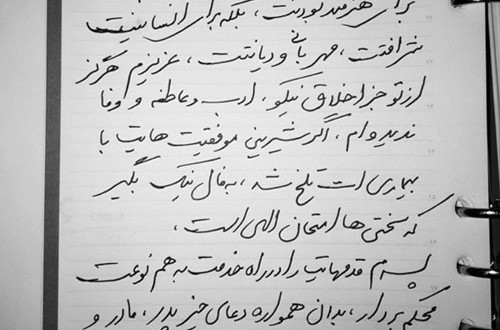 برای هنرمند بودنت ، بلکه برای انسانیت
شرافتت ، مهربانی و دیانتت ، عزیزم هرگز
از تو جز اخلاق نیکو ، ادب و عاطفه و وفا
ندیده ام ، اگر شیرینی موفقیت هایت با
بیماری ات تلخ شد ، به فال نیک بگیر
که سختی ها امتحان الهی است .
پسرم قدمهایت را در راه خدمت به هم نوعت
محکم بردار ، بدان همواره دعای خیر پدر ، مادر و